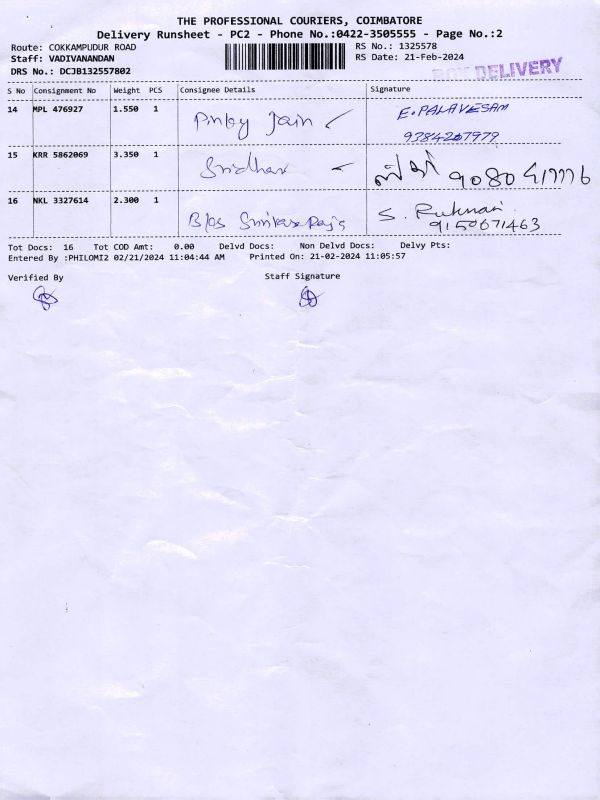 THE PROFESSIONAL COURIERS, COIMBATORE
Delivery Runsheet - PC2 - Phone No.:0422-3505555 - Page No.:2
Route: COKKAMPUDUR ROAD RS No.: 1325578
Staff: VADIVANANDAN RS Date: 21-Feb-2024
DRS No.: DCJB132557802 DELIVERY
S No Consignment No Weight PCS Consignee Details Signature
14 MPL 476927 1.550 1 Pinky Jain E.PALAVESAM
9384267979
15 KRR 5862069 3.350 1 Sridhar 9080
16 NKL 3327614 2.300 1 S. Rukmani
9150671463
Tot Docs: 16 Tot COD Amt: 0.00 Delvd Docs: Non Delvd Docs: Delvy Pts:
Entered By :PHILOMI2 02/21/2024 11:04:44 AM Printed On: 21-02-2024 11:05:57
Verified By Staff Signature